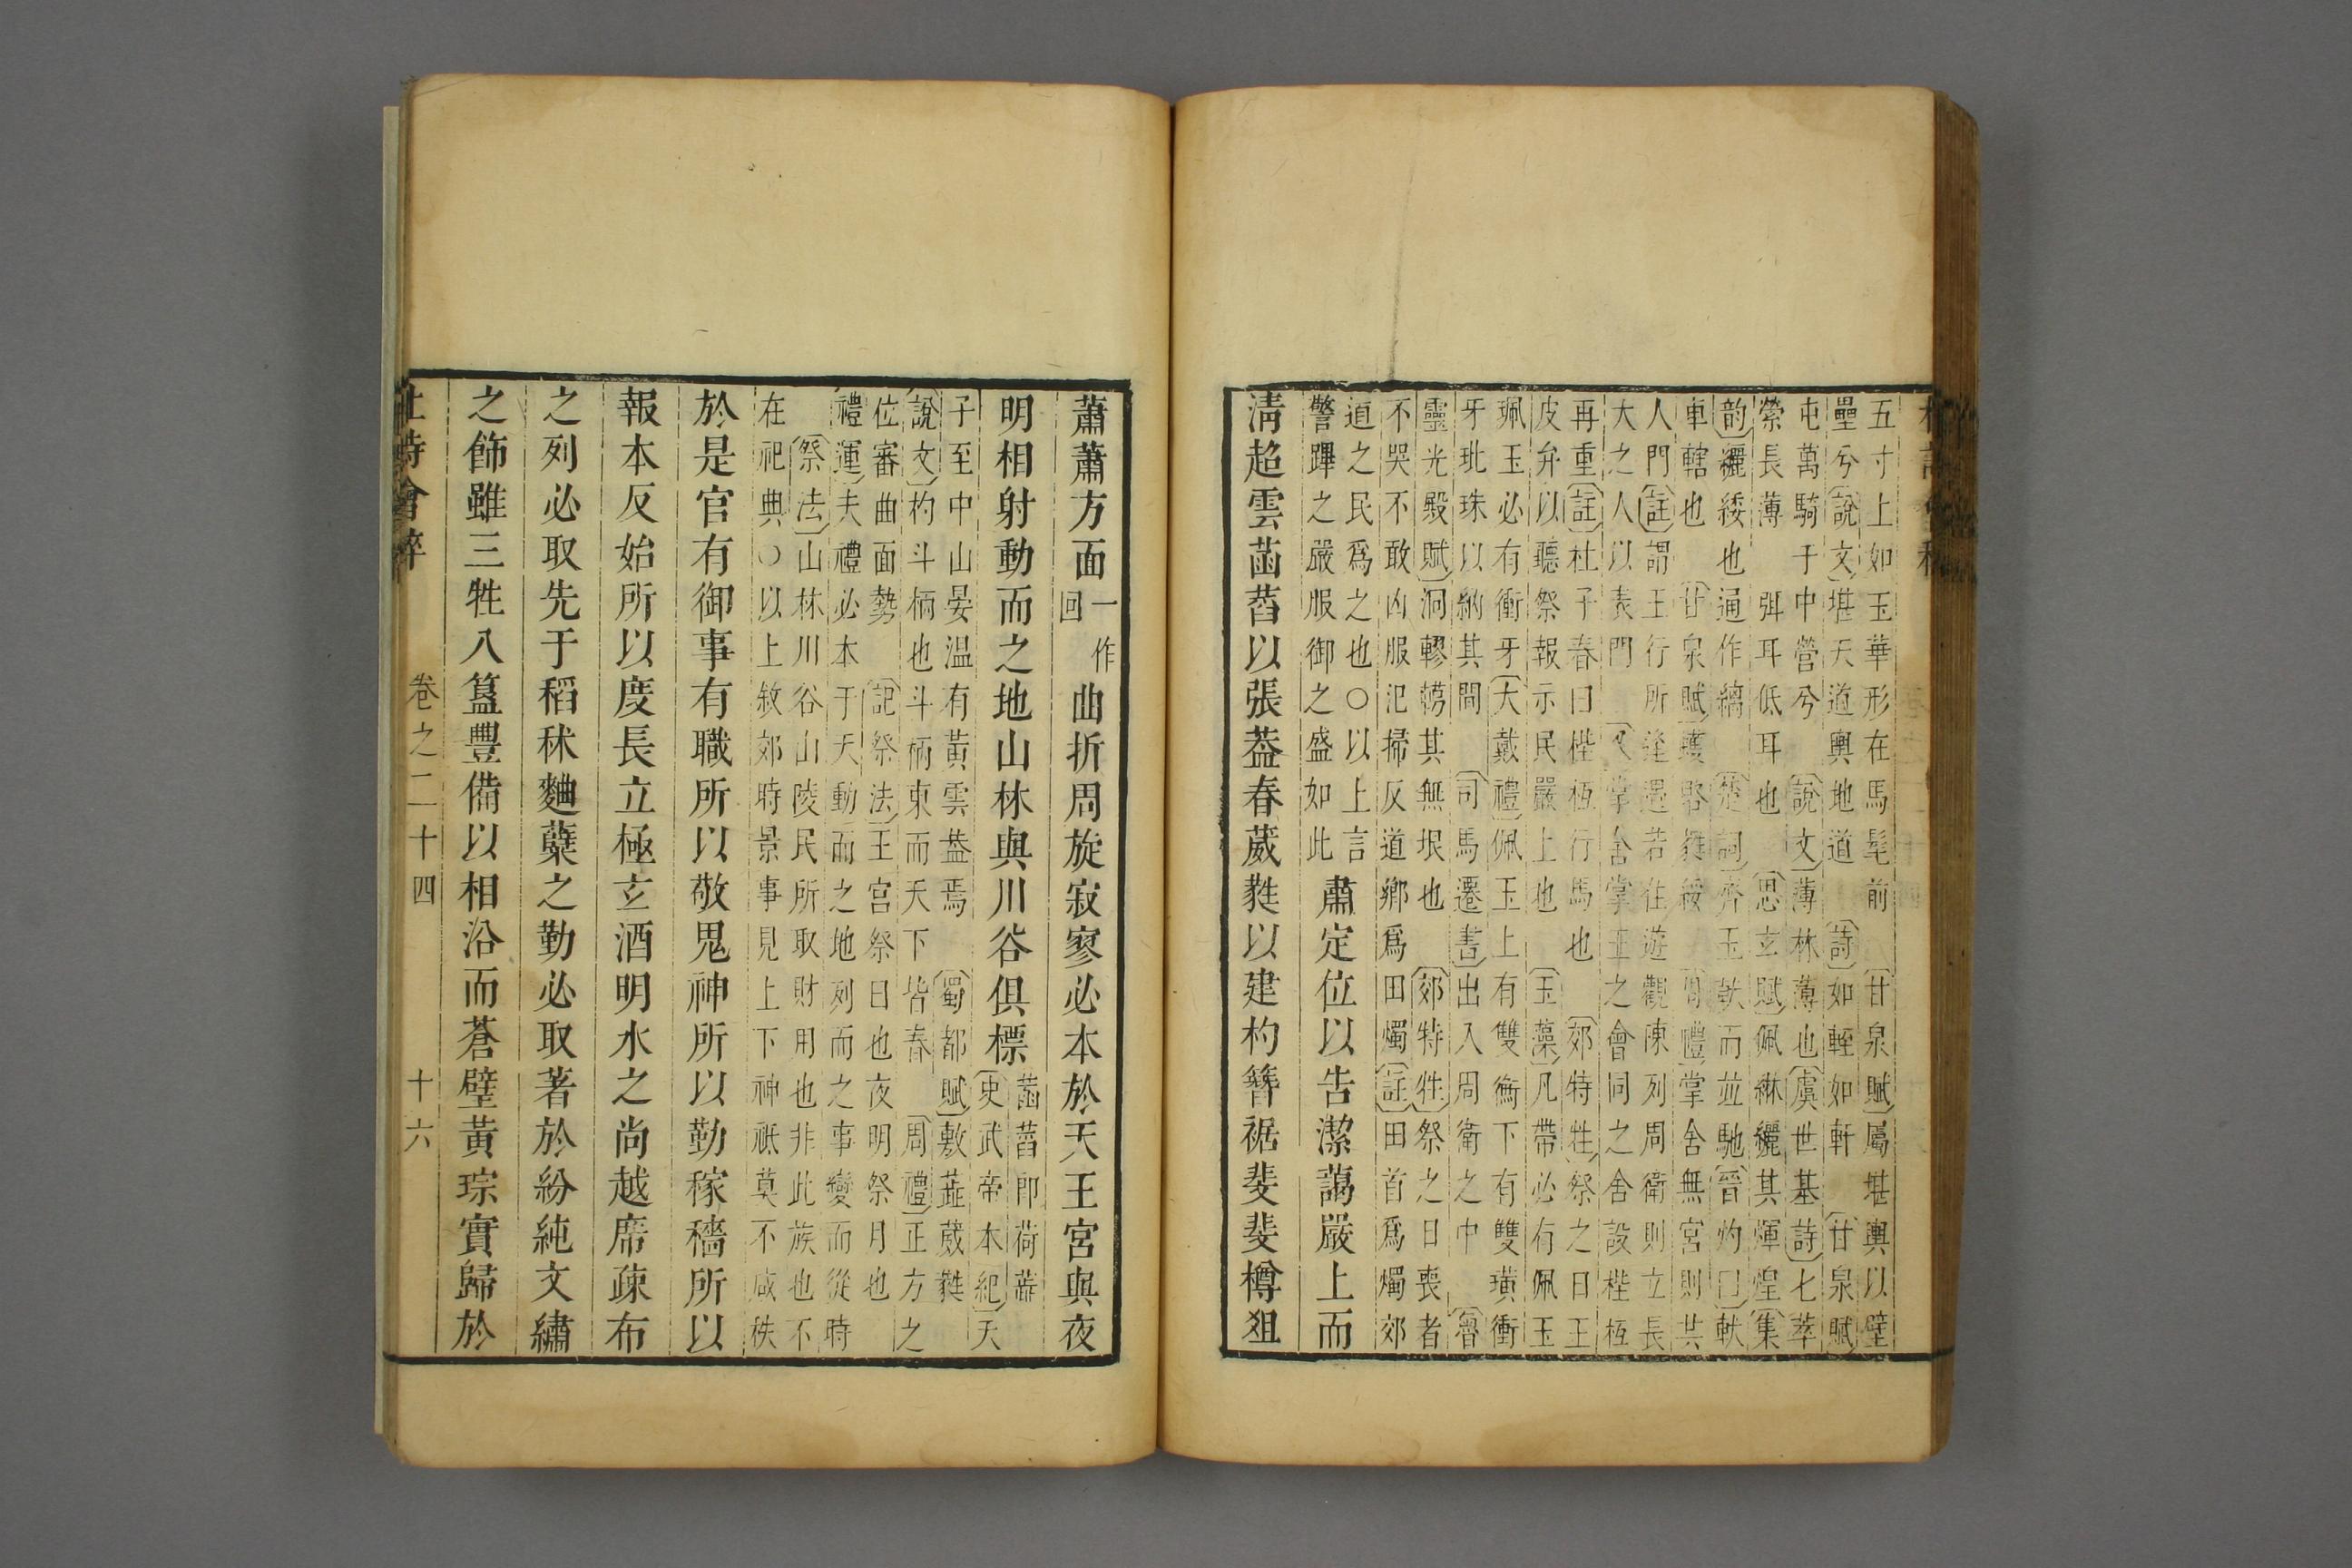 五寸上如玉華形在馬髦前　〔甘泉賦〕屬堪輿以壁
壘兮〔說文〕堪天道輿地道　〔詩〕如輊如軒　〔甘泉賦〕
屯萬騎于中營兮　〔說文〕薄林薄也〔虞世基詩〕七萃
縈長薄　弭耳低耳也　〔思玄賦〕佩綝纚其煇煌〔集
韵〕纚綏也通作縭　〔楚詞〕齊玉軑而並馳〔晉灼曰〕軑
車轄也　〔甘泉賦〕　〔周禮〕掌舍無宮則共
人門〔註〕謂王行所逢遇若在遊觀陳列周衛則立長
大之人以表門　〔又〕掌舍掌王之會同之舍設梐枑
再重〔註〕杜子春曰梐枑行馬也　〔郊特牲〕祭之日王
皮弁以聽祭報示民嚴上也　〔玉藻〕凡帶必有佩玉
珮玉必有衝牙〔大戴禮〕佩玉上有雙衡下有雙璜衝
牙玭珠以納其間　〔司馬遷書〕出入周衛之中　〔魯
靈光殿賦〕洞轇轕其無垠也　〔郊特牲〕祭之日喪者
不哭不敢凶服汜掃反道鄉爲田燭〔註〕田首爲燭郊
道之民爲之也○以上言
警蹕之嚴服御之盛如此
肅定位以告潔藹嚴上而
淸超雲菡萏以張葢春葳蕤以建杓簪裾斐斐樽俎
蕭蕭方面一作回曲折周旋寂寥必本於天王宮與夜
明相射動而之地山林與川谷俱標
菡萏卽荷葢〔史武帝本紀〕天
子至中山晏温有黃雲葢焉　〔蜀都賦〕敷蘂葳蕤
〔說文〕杓斗柄也斗柄東而天下皆春　〔周禮〕正方之
位審曲面勢　〔記祭法〕王宮祭日也夜明祭月也
〔禮運〕夫禮必本于天動而之地列而之事變而從時
〔祭法〕山林川谷山陵民所取財用也非此族也不
在祀典○以上敘郊時景事見上下神祇莫不咸秩
於是官有御事有職所以敬鬼神所以勤稼穡所以
報本反始所以度長立極玄酒明水之尚越席疎布
之列必取先于稻秫麯櫱之勤必取著於紛純文繡
之飾雖三牲八簋豐備以相沿而蒼璧黃琮實歸於
卷之二十四　十六